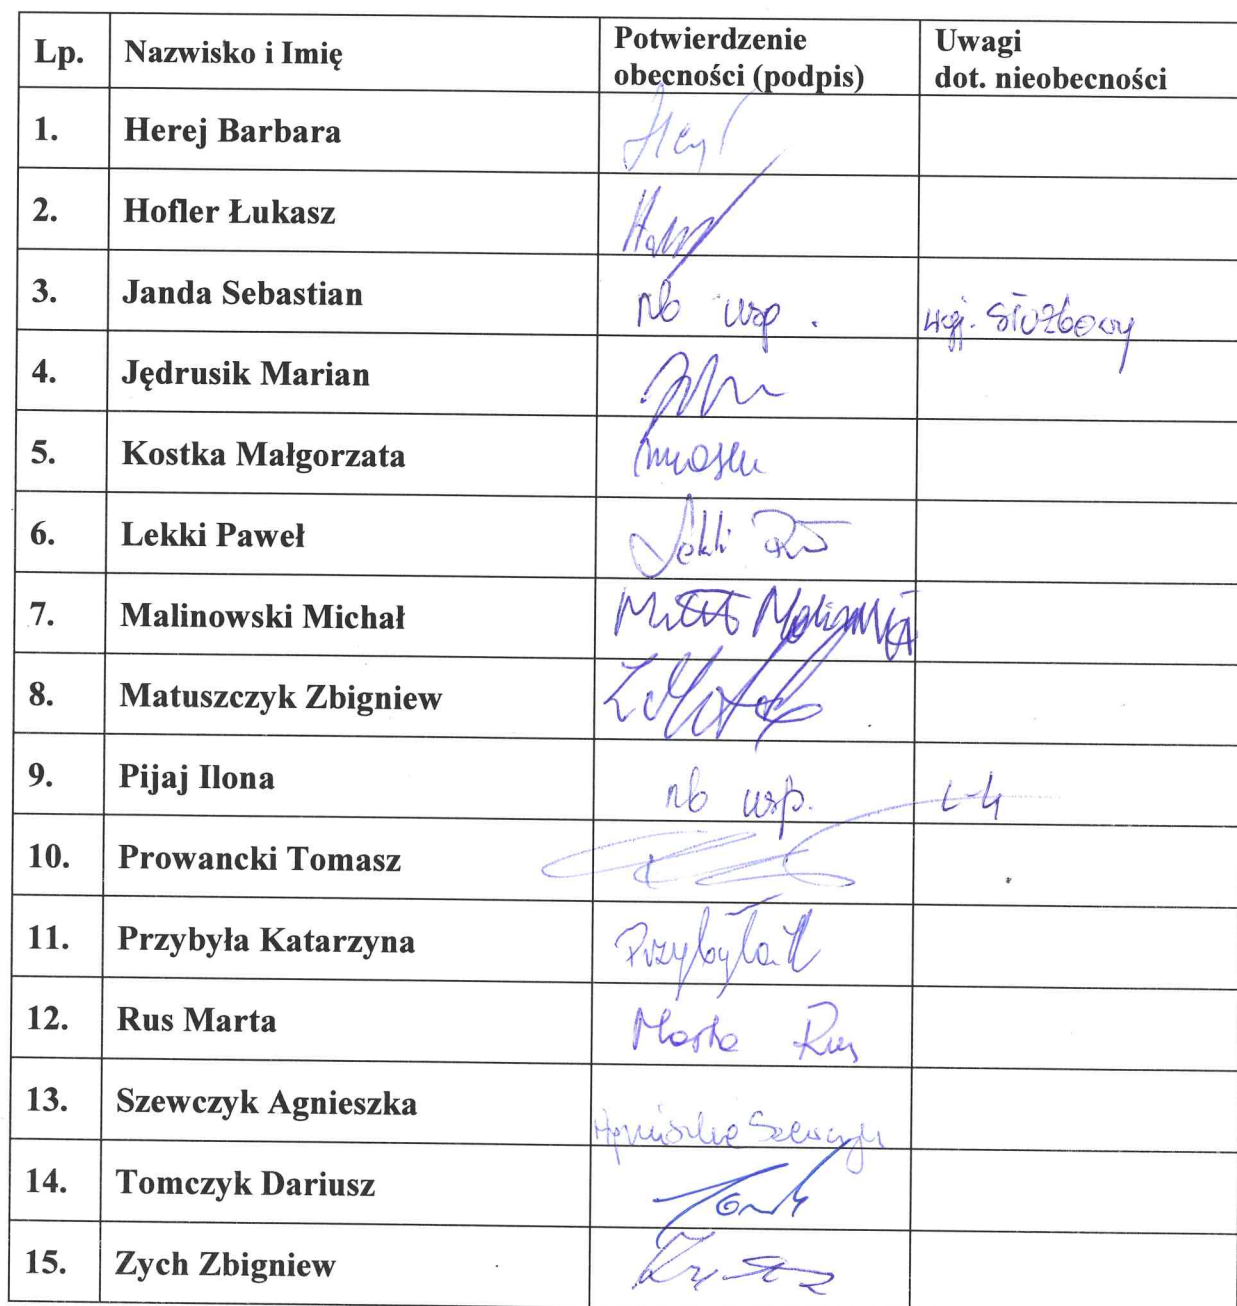 Lp. Nazwisko i Imię Potwierdzenie obecności (podpis) Uwagi dot. nieobecności
1. Herej Barbara
2. Hofler Łukasz
3. Janda Sebastian nb usp. wyj. służbowy
4. Jędrusik Marian
5. Kostka Małgorzata
6. Lekki Paweł Lekki
7. Malinowski Michał Michał Malinowski
8. Matuszczyk Zbigniew
9. Pijaj Ilona nb usp. L-4
10. Prowancki Tomasz
11. Przybyła Katarzyna Przybyła K
12. Rus Marta Marta Rus
13. Szewczyk Agnieszka Agnieszka Szewczyk
14. Tomczyk Dariusz
15. Zych Zbigniew